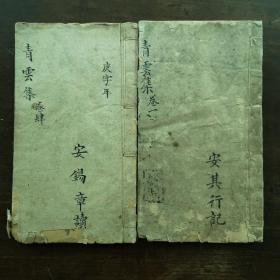 青雲集卷肆
庚字年
安錫章讀
青雲集卷一
安其行記